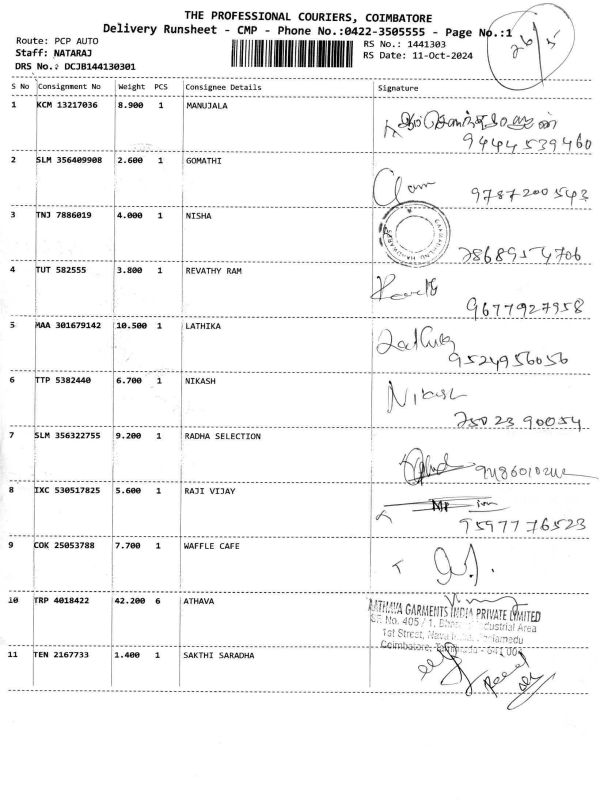 THE PROFESSIONAL COURIERS, COIMBATORE
Delivery Runsheet - CMP - Phone No.:0422-3505555 - Page No.:1
26/5
Route: PCP AUTO
RS No.: 1441303
Staff: NATARAJ
RS Date: 11-Oct-2024
DRS No.: DCJB144130301
S No Consignment No Weight PCS Consignee Details Signature
1 KCM 13217036 8.900 1 MANUJALA
9444539460
2 SLM 356409908 2.600 1 GOMATHI
9787200543
3 TNJ 7886019 4.000 1 NISHA
4 TUT 582555 3.800 1 REVATHY RAM
9677927958
5 MAA 301679142 10.500 1 LATHIKA
9524956056
6 TTP 5382440 6.700 1 NIKASH
Nikash
7502390054
7 SLM 356322755 9.200 1 RADHA SELECTION
8 IXC 530517825 5.600 1 RAJI VIJAY
9597776523
9 COK 25053788 7.700 1 WAFFLE CAFE
10 TRP 4018422 42.200 6 ATHAVA
AATHAVA GARMENTS INDIA PRIVATE LIMITED
SF. No. 405 / 1, Industrial Area
1st Street,
Coimbatore, Tamilnadu - 641 004
11 TEN 2167733 1.400 1 SAKTHI SARADHA